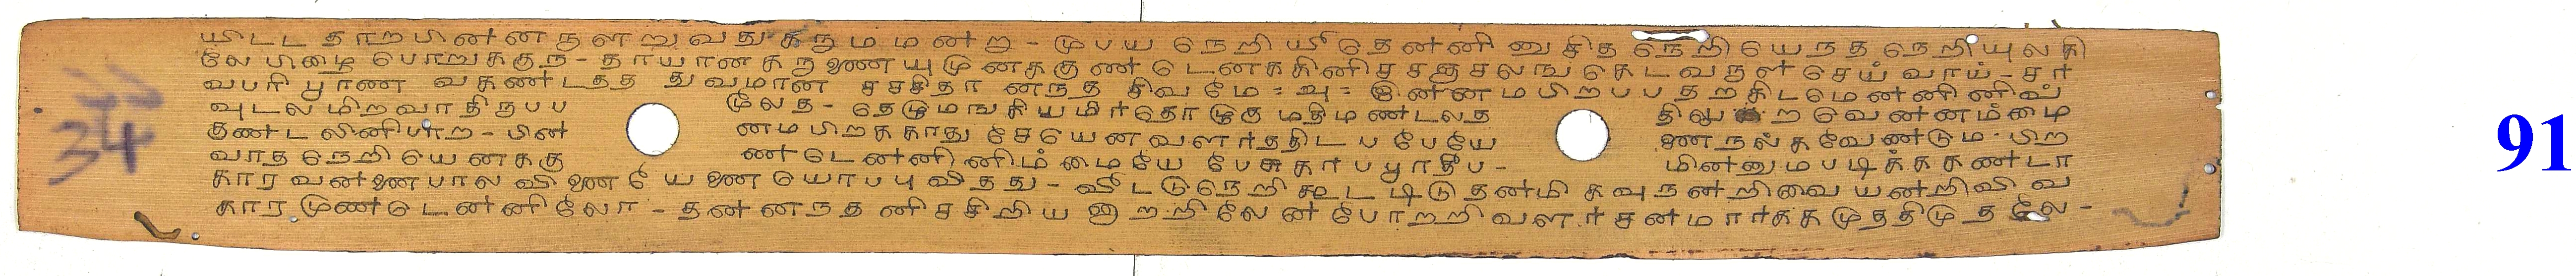 யிடட தாறபினனை நளறுவது கருமமனறு - முபய நெறி யீதெனனி னுசித நெறி யெநத நெறியுலகி
லே பிழை பொறுககுந - தாயான கருணை யுமுனககுண டெனககினிசசஞசலங கெடவருள செய்வாய் - சா
வபரி பூரண வகணடதத துவமான சசசிதா னநத சிவமே = அ = இனனம பிறபபதறகிடமெனனினிவ்
வுடலமிறவாதிருபப மூலத - தெழுமஙகியமிர்தொழுகு மதிமணடலத திலு றவெனனம்மை
குணடலினிபாற - பின் னமபிறககாது சேயெனவளர்ததிடப பேயே ணைநலகவேணடும - பிற
வாதநெறி யெனககு ணடெனனினிம்மையே பேசுகர்பபூரதீப - மினனுமபடிககணடா
கார வனணபால வினணே யணையொபபுவிதது - வீடடுநெறி கூடடிடுதனமிகவுநனறிவை யனறிவிவ
காரமுணடெனனிலோ - தனனநதனிசசிறிய னாறறிலேன போறறிவளர்சனமார்ககமுததிமுதலே -
34
91